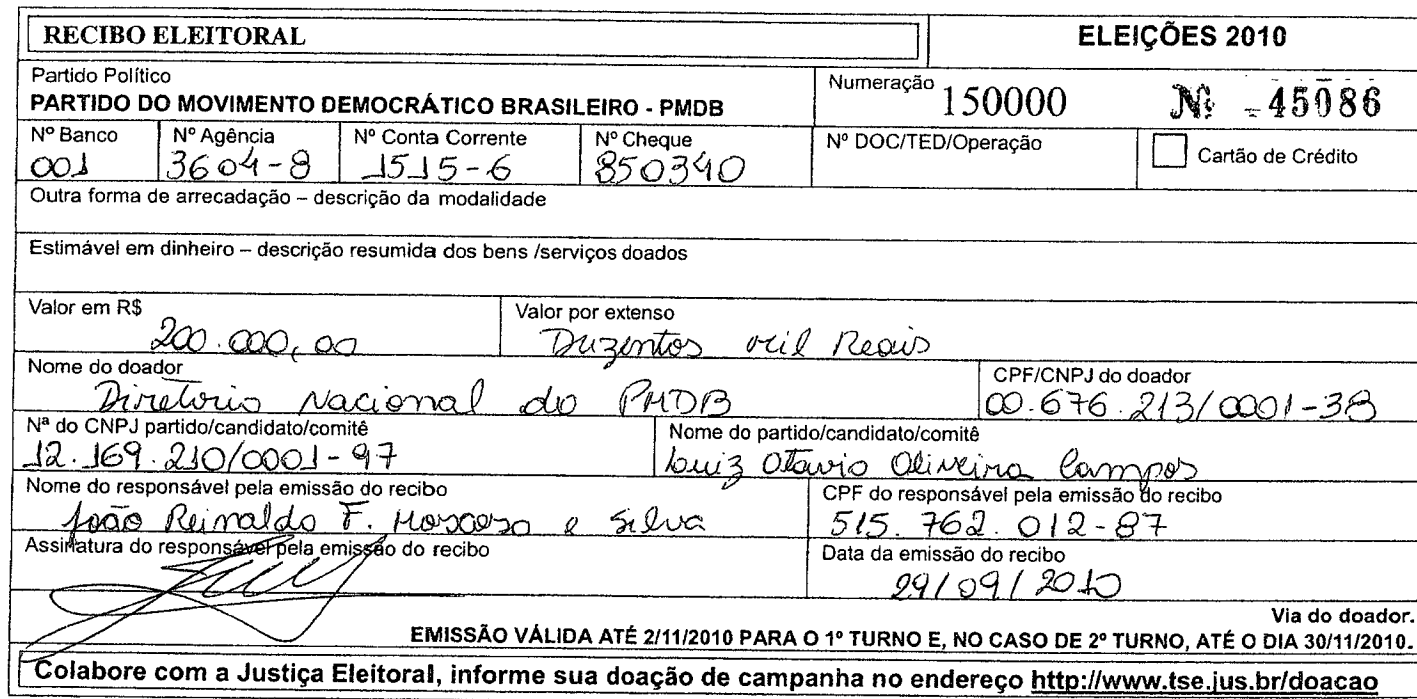 RECIBO ELEITORAL
ELEIÇÕES 2010
Partido Político
PARTIDO DO MOVIMENTO DEMOCRÁTICO BRASILEIRO - PMDB
Numeração 150000 Nº 45086
Nº Banco
001
Nº Agência
3604-8
Nº Conta Corrente
1515-6
Nº Cheque
850340
Nº DOC/TED/Operação
Cartão de Crédito
Outra forma de arrecadação – descrição da modalidade
Estimável em dinheiro – descrição resumida dos bens /serviços doados
Valor em R$
200.000,00
Valor por extenso
Duzentos mil Reais
Nome do doador
Diretorio Nacional do PMDB
CPF/CNPJ do doador
00.676.213/0001-38
Nª do CNPJ partido/candidato/comitê
12.169.210/0001-97
Nome do partido/candidato/comitê
Luiz Otavio Oliveira Campos
Nome do responsável pela emissão do recibo
João Reinaldo F. Moscoso e Silva
CPF do responsável pela emissão do recibo
515.762.012-87
Assinatura do responsável pela emissão do recibo
Data da emissão do recibo
29/09/2010
Via do doador.
EMISSÃO VÁLIDA ATÉ 2/11/2010 PARA O 1º TURNO E, NO CASO DE 2º TURNO, ATÉ O DIA 30/11/2010.
Colabore com a Justiça Eleitoral, informe sua doação de campanha no endereço http://www.tse.jus.br/doacao